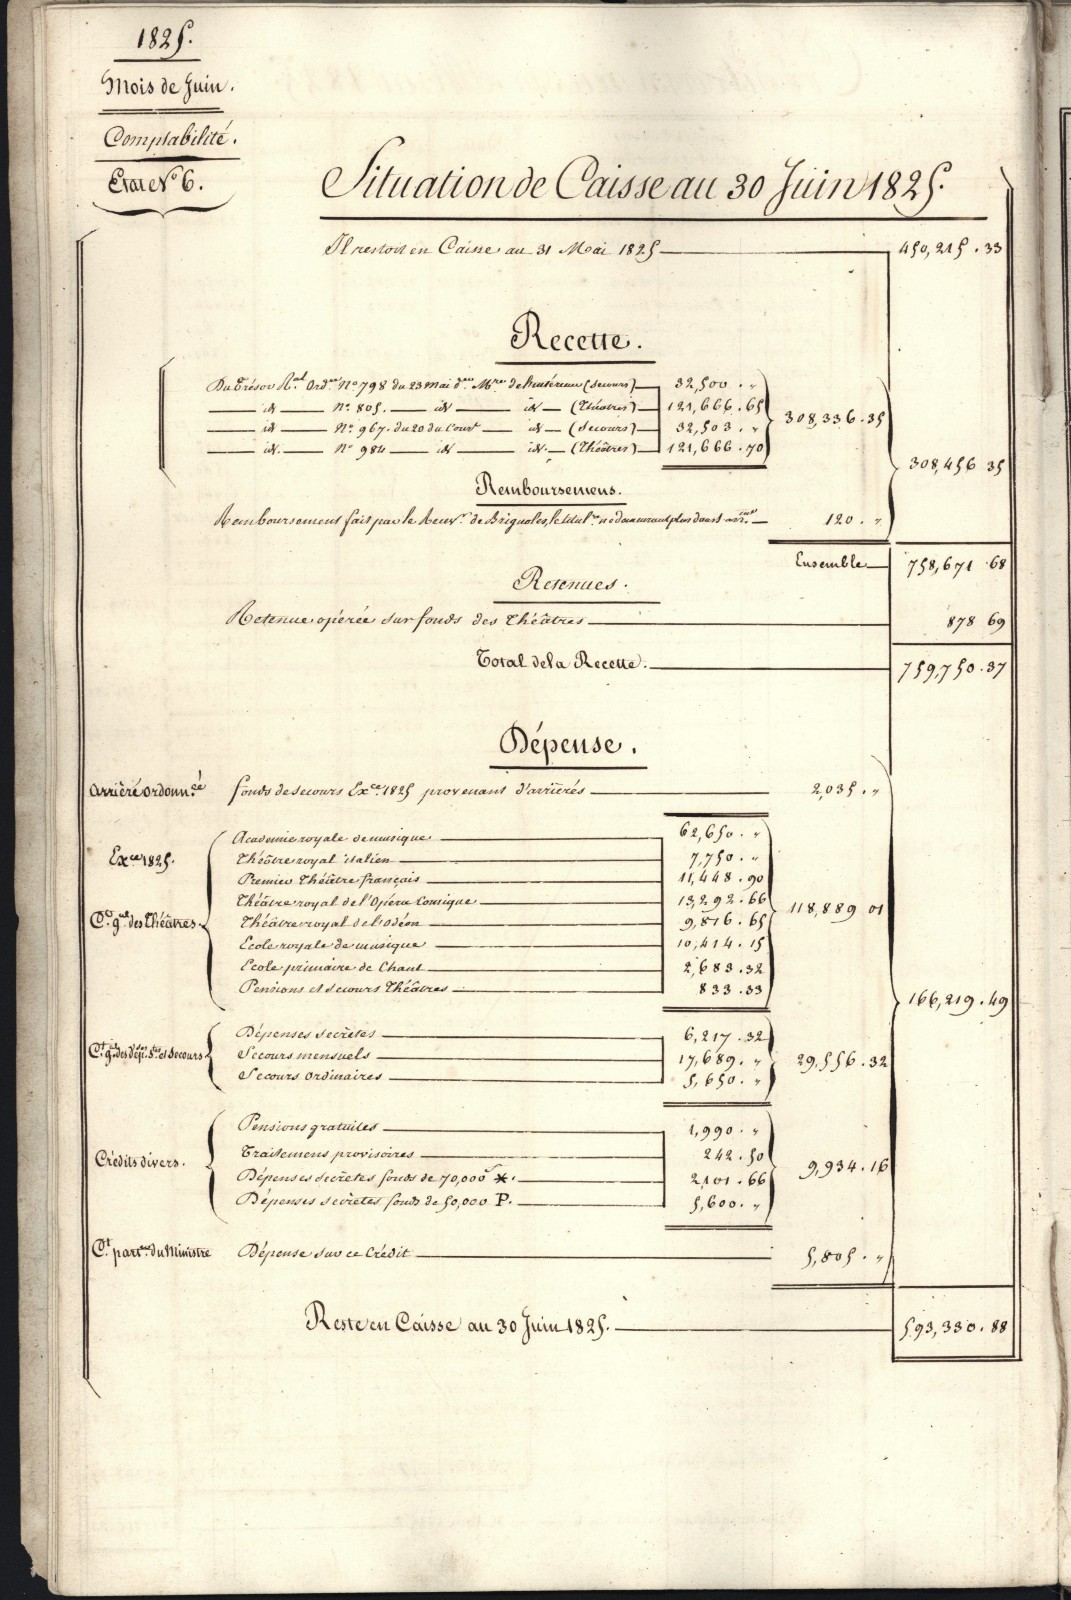 1825.
Mois de Juin.
Comptabilité.
Etat No 6.
Situation de Caisse au 30 Juin 1825.
Il restoit en Caisse au 31 Mai 1825 450,215.33
Recette.
Du Trésor Ral Ordce No 798 du 23 mai den Mre de (Secours) 32,500."
id No. 805. id id (Théâtres) 121,666.65 308,336.35
id No. 967. du 20 du Court id (Secours) 32,503."
id. No 984 id id. (Théâtres) 121,666.70
308,456 35
Remboursemens.
Remboursement fait par le de Brignoles, le titulre ne demeurant plus dans l' 120."
Ensemble 758,671.68
Retenues.
Retenue opérée sur fonds des Théâtres 878 69
Total de la Recette. 759,750.37
Dépense.
Arriéré ordonncé fonds de secours Exce 1825 provenant d'arriérés 2,035."
Exce 1825.
Ct gal des Théâtres.
Académie royale de musique 62,650."
Théâtre royal italien 7,750."
Premier Théâtre français 11,448.90
Théâtre royal de l'Opéra Comique 13,292.66 118,889 01
Théâtre royal de l'Odéon 9,816.65
Ecole royale de musique 10,414.15
Ecole primaire de Chant 2,683.32
Pensions et secours Théâtres 833.33
166,219.49
Ct gal des dép. stes et Secours
Dépenses secrètes 6,217.32
Secours mensuels 17,689." 29,556.32
Secours ordinaires 5,650."
Crédits divers.
Pensions gratuites 1,990."
Traitemens provisoires 242.50
Dépenses secrètes fonds de 70,000f *. 2,101.66 9,934.16
Dépenses secrètes fonds de 50,000 P. 5,600."
Ct partier du Ministre Dépense sur ce Crédit 5,805."
Reste en Caisse au 30 Juin 1825. 593,330.88